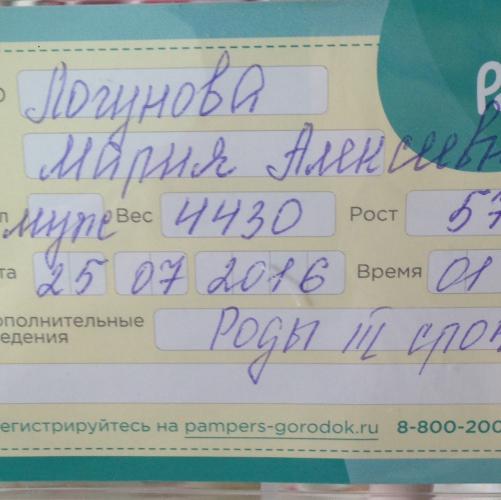 Логунова
Мария Алексеевн
муж Вес 4430 Рост 57
25 07 2016 Время 01
ополнительные Роды III срочн
едения
егистрируйтесь на pampers-gorodok.ru 8-800-200